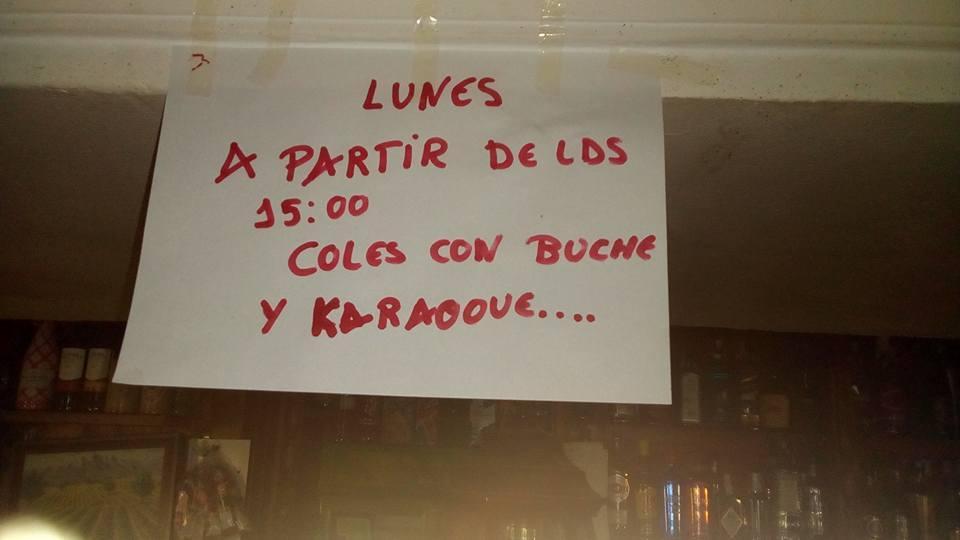 LUNES
A PARTIR DE LDS
15:00
COLES CON BUCHE
Y KARAOOUE....